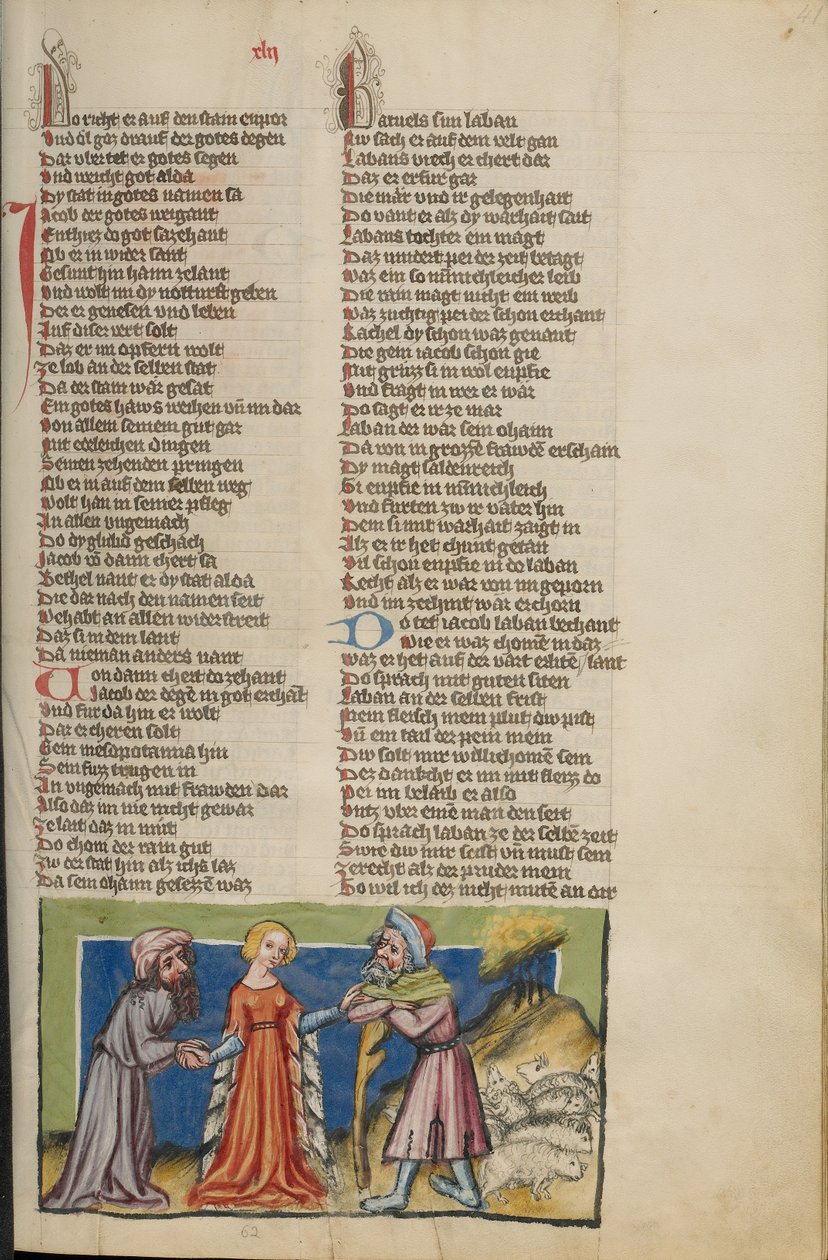 41
xlij
Do richt er auf den stain enpor
Vnd öl goz drauf der gotes degen
Dar vber tet er gotes segen
Vnd weicht got alda
Dy stat in gotes namen sa
Jacob der gotes weigant
Enthiez do got sazehant
Ob er in wider sant
Gesunt hin haim ze lant
Vnd wolt im dy notturft geben
Der er genesen vnd leben
Auf diser vert solt
Daz er im opfern wolt
Ze lob an der selben stat
Da der stain wär gesat
Ein gotes haws weihen vn̄ im dar
Von allem seinem gut gar
Mit edeleichen dingen
Seinen zehenden pringen
Ob er in auf dem selben weg
Wolt han in seiner pfleg
An allen vngemach
Do dy glubd geschach
Jacob vō dann chert sa
Bethel nant er dy stat alda
Die dar nach den namen seit
Behabt an allen widerstreit
Daz si in dem lant
Da nieman anders nant
Von dann chert do zehant
Jacob der dege in got erchāt
Vnd fur da hin er wolt
Dar er cheren solt
Gein mesopotamia hin
Sein fuzz trugen in
An vngemach mit frawden dar
Also daz im nie nicht gewar
Ze lait daz in müt
Do chom der rain gut
Zw der stat hin alz ichs laz
Da sein ohaim gesezzē waz
Batuels sun laban
Nw sach er auf dem velt gan
Labans viech er chert dar
Daz er erfur gar
Die mär vnd ir gelegenhait
Do vant er alz dy warhait sait
Labans tochter ein magt
Daz mindert pei der zeit betagt
Waz ein so minichleicher leib
Die rain magt nicht ein weib
Waz zuchtig pei der schon erchant
Rachel dy schon waz genant
Die gein iacob schon gie
Mit gruzz si in wol enpfie
Vnd fragt in wer er wär
Do sagt er ir ze mär
Laban der wär sein ohaim
Da von in grozzē frawdē erschain
Dy magt säldenreich
Si enpfie in minichleich
Vnd fürten zw ir vater hin
Dem si mit warhait zaigt in
Alz er ir het chunt getan
Vil schon enpfie in do laban
Recht alz er wär von im geporn
Vnd im ze chint wär erchorn
Do tet iacob laban bechant
Wie er waz chomē in daz
Waz er het auf der vart erlitē lant
Do sprach mit guten siten
Laban an der selben frist
Mein fleisch mein plut dw pist
Vn̄ ein tail der pein mein
Dw solt mir willichomē sein
Dez dankcht er im mit fleizz do
Pei im belaib er also
Vntz vber einē man den seit
Do sprach laban ze der selbē zeit
Swie dw mir seist vn̄ must sein
Ze recht alz der pruder mein
So wil ich dez nicht mutē an dir
62